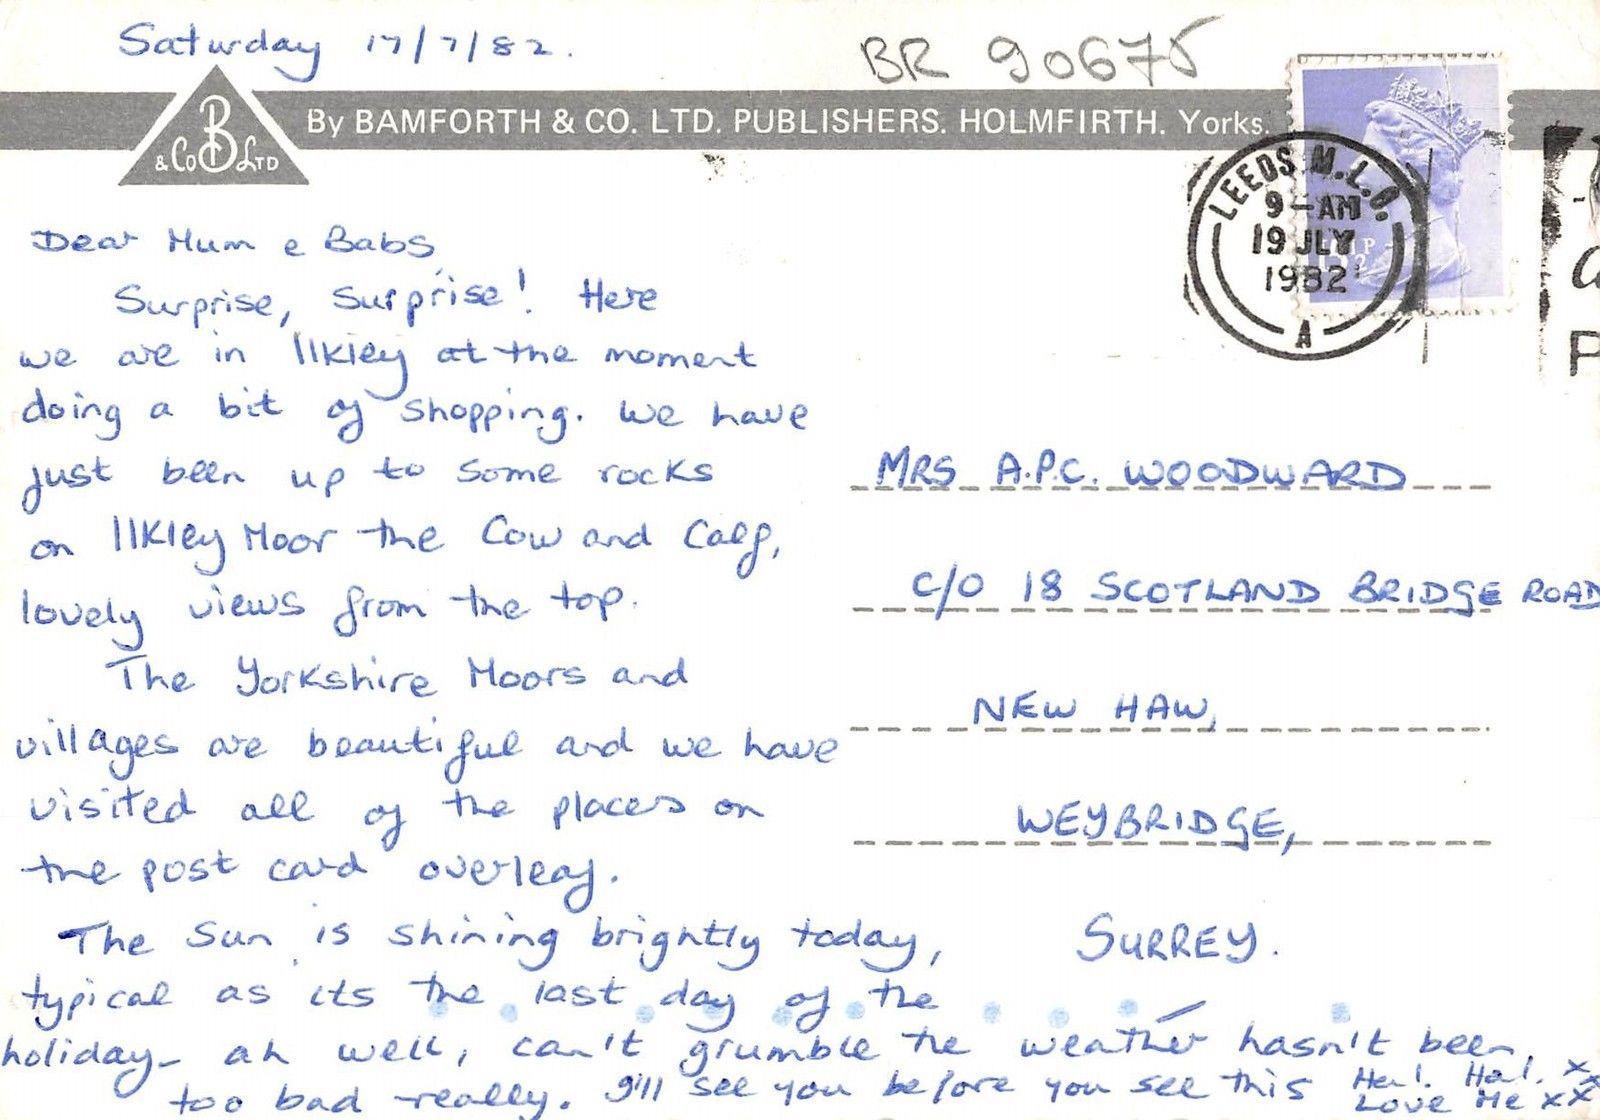 Saturday 17/7/82.
BR 90675
B & Co LTD
By BAMFORTH & CO. LTD. PUBLISHERS. HOLMFIRTH. Yorks.
LEEDS M.L.O.
9 - AM
19 JLY
1982
A
Dear Mum & Babs,
Surprise, Surprise! Here
we are in Ilkley at the moment
doing a bit of shopping. We have
just been up to some rocks
on Ilkley Moor the Cow and Calf,
lovely views from the top.
The Yorkshire Moors and
villages are beautiful and we have
visited all of the places on
the post card overleaf.
The Sun is shining brightly today,
typical as its the last day of the
holiday - ah well, can't grumble the weather hasn't been
too bad really. I'll see you before you see this Ha!. Ha!.
Love Me xxxx
MRS A.P.C. WOODWARD
C/O 18 SCOTLAND BRIDGE ROAD
NEW HAW,
WEYBRIDGE,
SURREY.